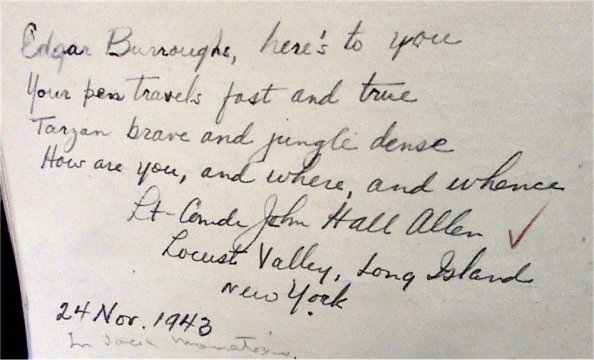 Edgar Burroughs, here's to you
Your pen travels fast and true
Tarzan brave and jungle dense
How are you, and where, and whence
Lt-Comdr John Hall Allen
Locust Valley, Long Island
New York
24 Nov. 1943
In